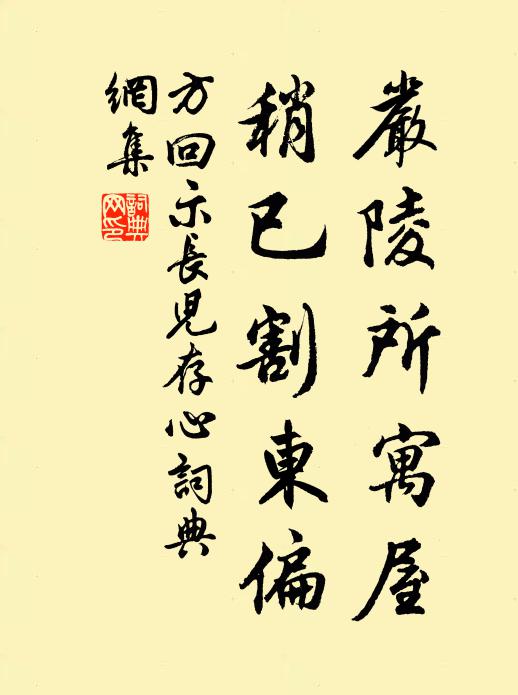 嚴陵所寓屋
稍已割東偏
方回示長児存心詞典
網集
詞典网印